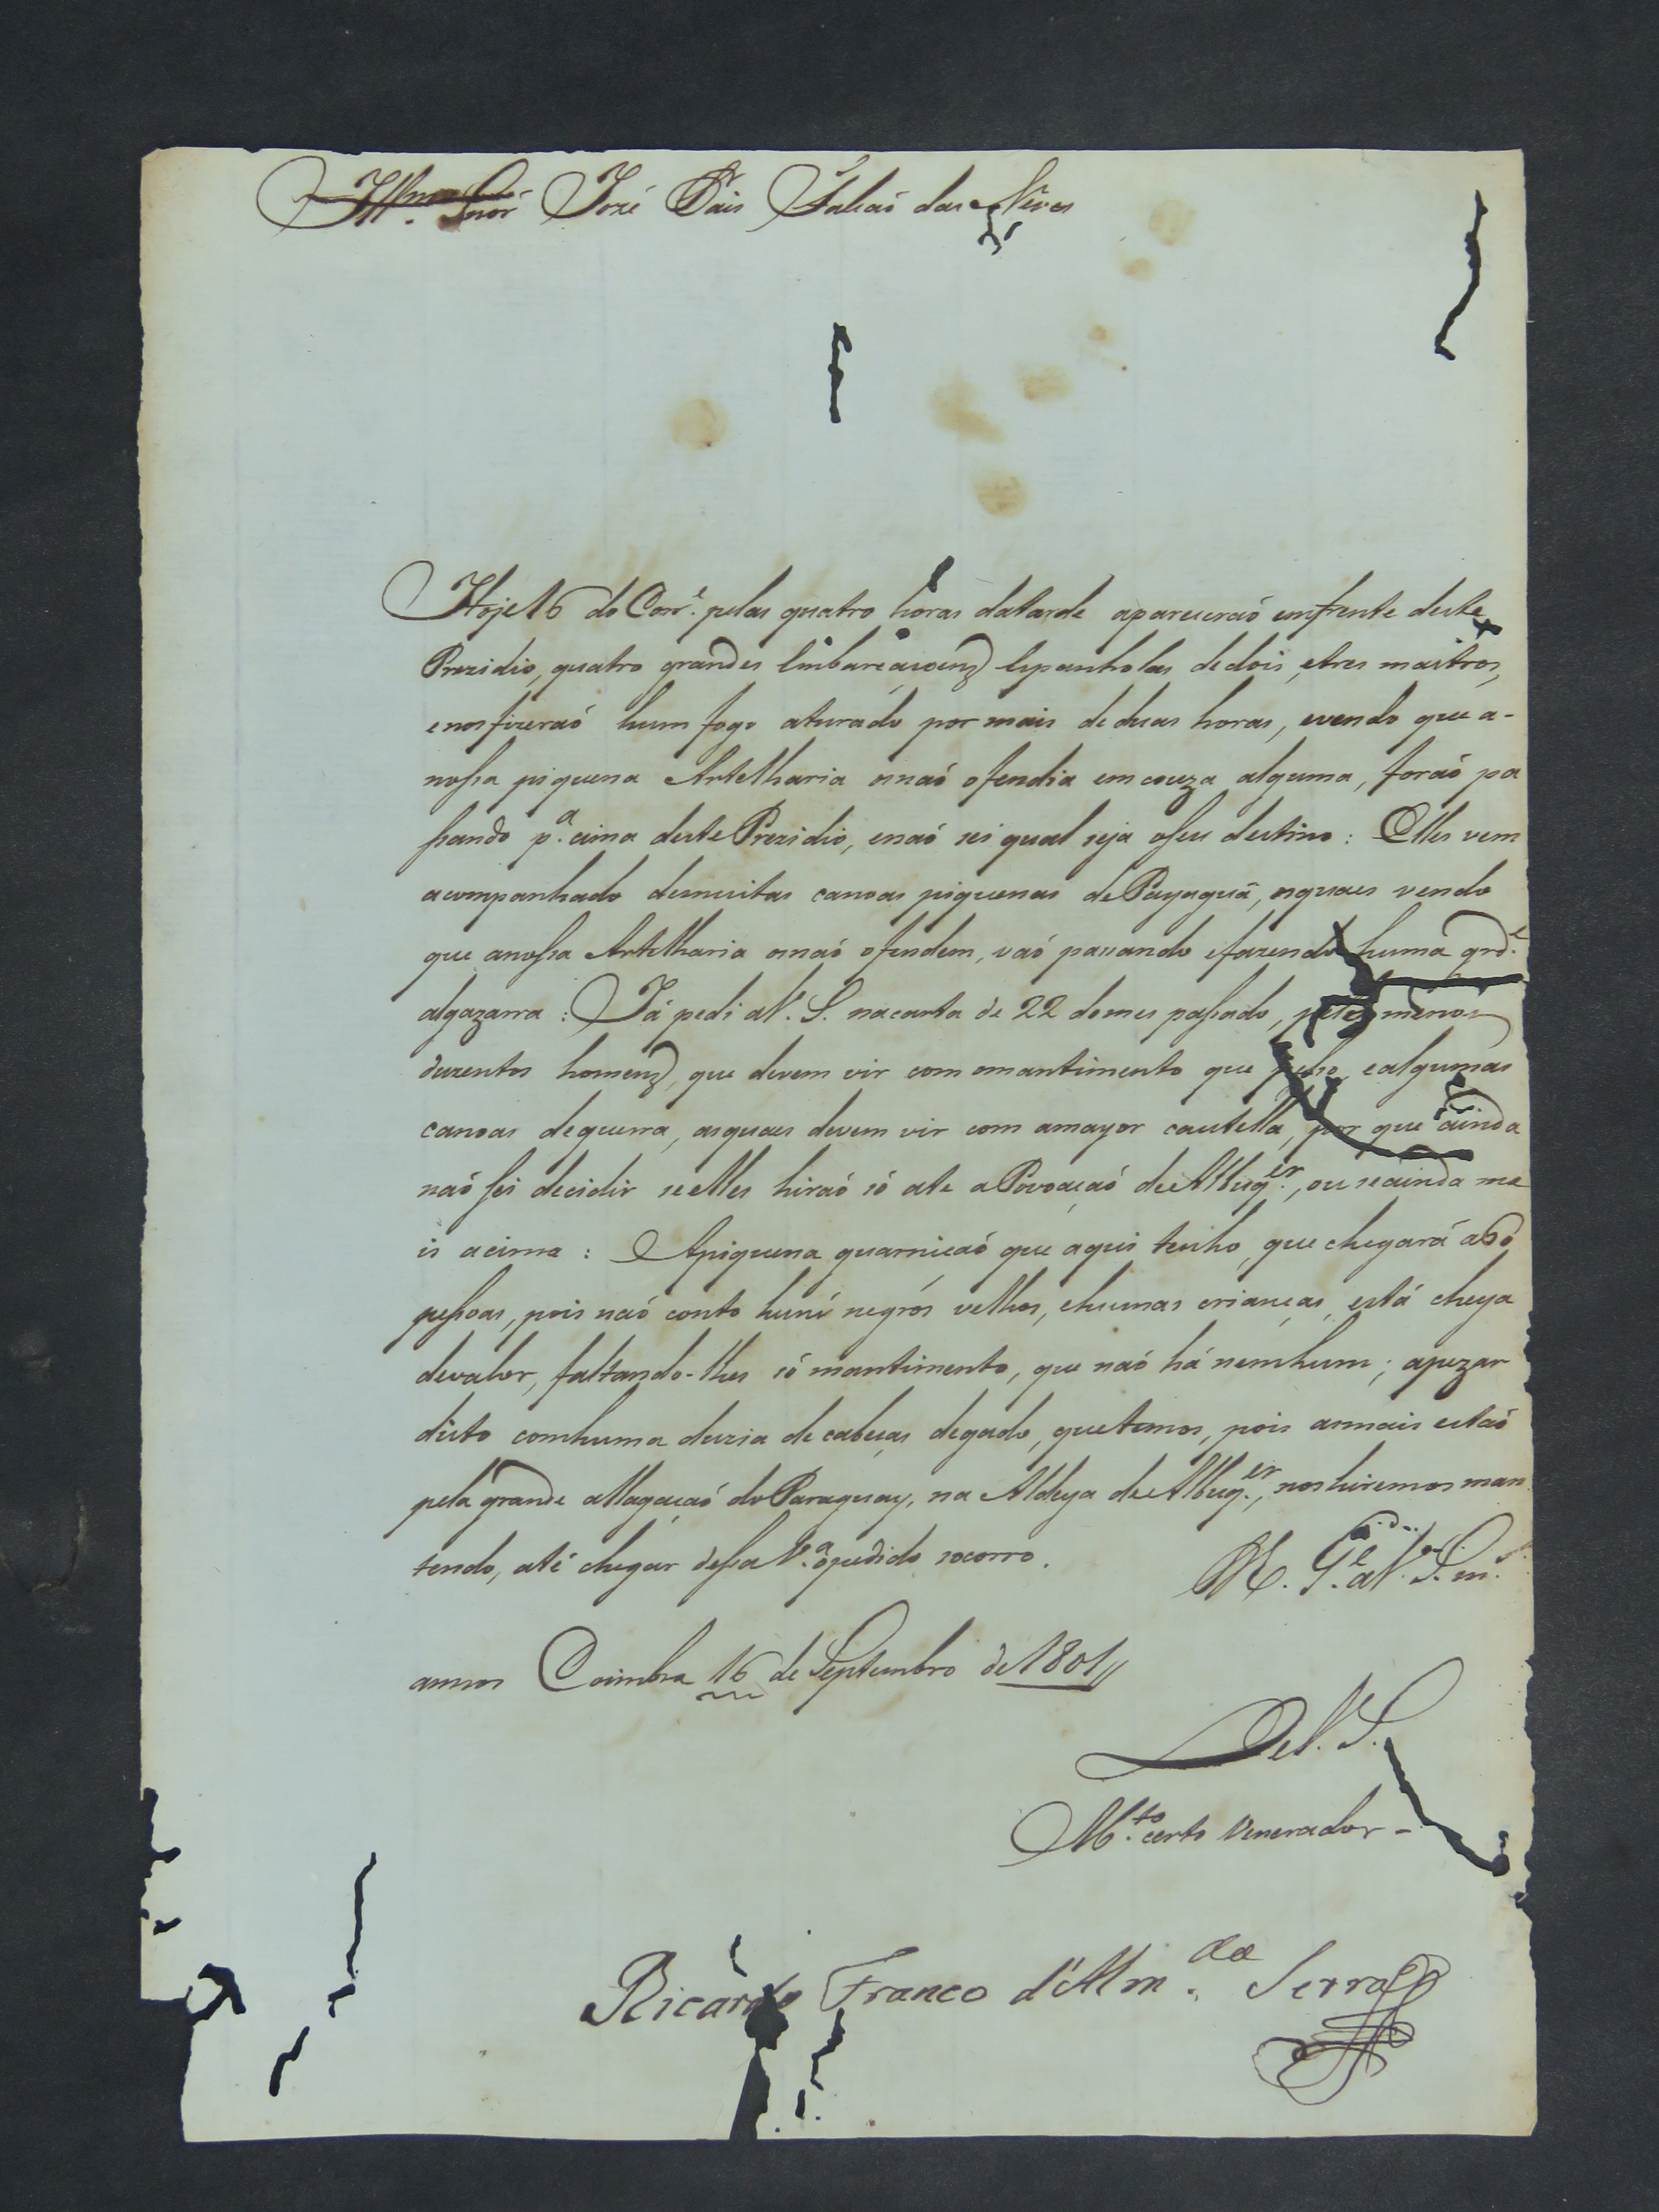 Ill.mo Snõr José Pais Falcaõ das Neves
Hoje 16 do Corr.e pelas quatro horas datarde apareceraõ emfrente deste
Prezidio, quatro grandes Embarcaçoens Espanholas de dois, etres mastros,
enosfizeraõ hum fogo aturado por mais de duas horas, evendo que a-
nossa piquena Artelharia onaõ ofendia em couza alguma, foraõ pa
ssando p.a cima deste Prezidio, enaõ sei qual seja oseu destino: Elles vem
acompanhado demuitas canoas piquenas de Payaguâ, osquaes vendo
que anossa Artelharia onaõ ofendem, vaõ passando efazendo huma grd.e
algazarra: Já pedi aV. S. nacarta de 22 domes passado, pelo menos
duzentos homens, que devem vir com omantimento que peço, ealgumas
canoas deguerra, asquaes devem vir com amayor cautella, por que ainda
naõ sei decidir seelles hiraõ só ate aPovoaçaõ deAlbuq.er, ou seainda ma
is acima: Apiquena guarniçaõ que aqui tenho, que chegará a 60
pessoas, pois naõ conto huns negros velhos, ehumas crianças, está cheya
devalor, faltando-lhes só mantimento, que naõ há nemhum; apezar
disto comhuma duzia de cabeças degado, quetemos, pois asmais estaõ
pela grande allagaçaõ doParaguay, na Aldeya deAlbuq.er, noshiremos man
tendo, até chegar dessa V.a opedido socorro. N. S.e aV. S. m.s
annos Coimbra 16 de Septembro de 1801//
DeV. S.
M.to certo Venerador -
Ricardo Franco d'Alm.da Serra